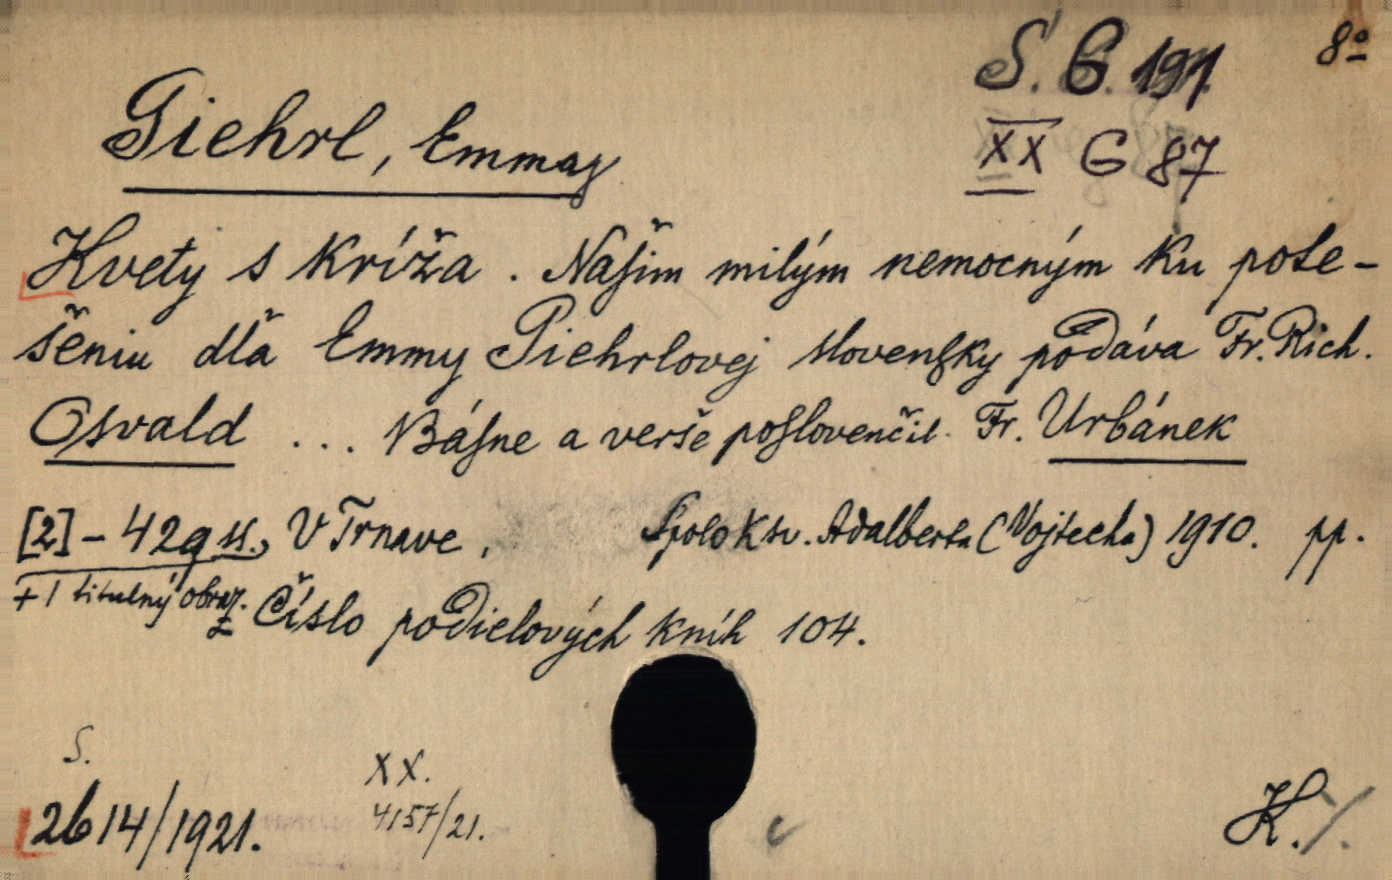 S. G. 191
8º
Giehrl, Emmay
XX G 87
Kvety s kríža. Naſim milým nemocným ku pote-
šeniu dľa Emmy Giehrlovej slovenſky podáva Fr. Rich.
Osvald ... Báſne a verše poſlovenčil Fr. Urbánek
[2] - 429 s., V Trnave, Spolok sv. Adalberta (Vojtecha) 1910. pp.
+ 1 titulný obraz.
Číslo podielových kníh 104.
S.
2614/1921.
XX.
4157/21.
c
K./.